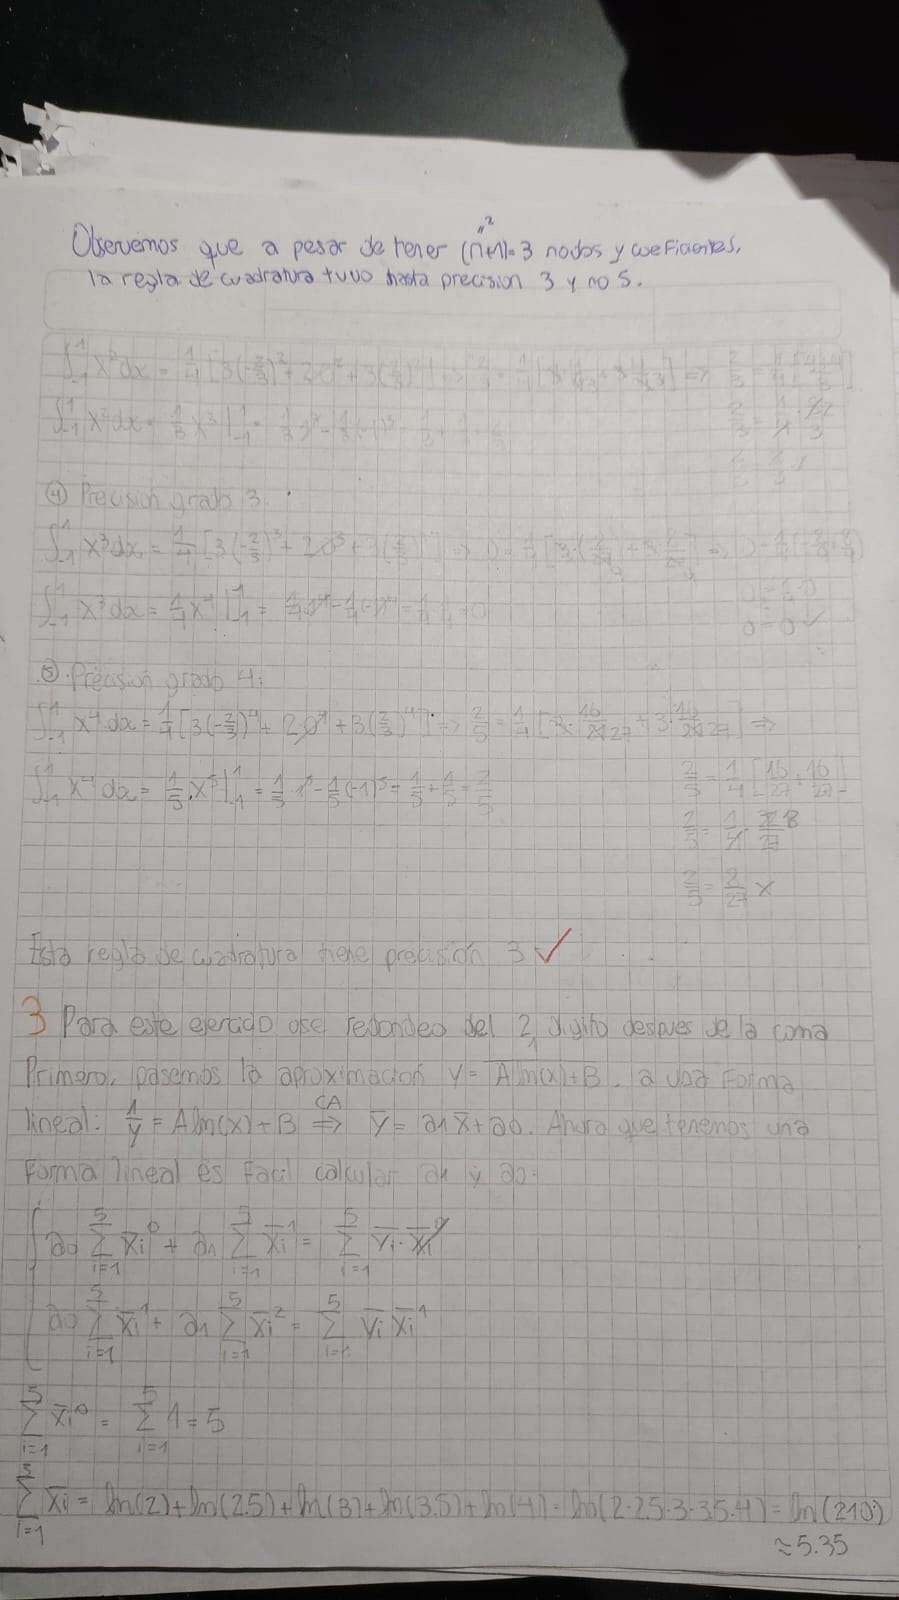 Observemos que a pesar de tener (n+1)=3 nodos y coeficientes,
la regla de cuadratura tuvo hasta precision 3 y no 5.
∫₋₁¹ x²dx = 1/4 [3(-2/3)² + 2·0² + 3(2/3)²]
∫₋₁¹ x²dx = 1/3 x³ |₋₁¹
④ Precision grado 3:
∫₋₁¹ x³dx = 1/4 [3(-2/3)³ + 2·0³ +
0 = 0 ✓
∫₋₁¹ x³dx = 1/4 x⁴ |₋₁¹ =
⑤ Precision grado 4:
∫₋₁¹ x⁴dx = 1/4 [3(-2/3)⁴ + 2·0⁴ + 3(2/3)⁴] => 2/5 = 1/4 [3· 16/27 + 3· 16/27] =>
∫₋₁¹ x⁴dx = 1/5 x⁵ |₋₁¹ = 1/5 · 1⁵ - 1/5 (-1)⁵ = 1/5 + 1/5 = 2/5
2/5 = 1/4 [16/27 + 16/27]
2/5 = 1/4 · 32/27 8
2/5 = 8/27 x
Esta regla de cuadratura tiene precisión 3 ✓
3 Para este ejercicio use redondeo del 2 digito despues de la coma
Primero, pasemos la aproximacion y = A ln(x)+B, a una forma
lineal: 1/y = A ln(x) + B =CA=> y̅ = a1 x̅ + a0. Ahora que tenemos una
forma lineal es facil calcular a1 y a0:
{ a0 ∑ᵢ₌₁⁵ x̅i⁰ + a1 ∑ᵢ₌₁⁵ x̅i¹ = ∑ᵢ₌₁⁵ y̅i · x̅i⁰
a0 ∑ᵢ₌₁⁵ x̅i¹ + a1 ∑ᵢ₌₁⁵ x̅i² = ∑ᵢ₌₁⁵ y̅i x̅i¹
∑ᵢ₌₁⁵ x̅i⁰ = ∑ᵢ₌₁⁵ 1 = 5
∑ᵢ₌₁⁵ x̅i = ln(2)+ln(2.5)+ln(3)+ln(3.5)+ln(4) = ln(2·2.5·3·3.5·4) = ln(210)
≈5.35